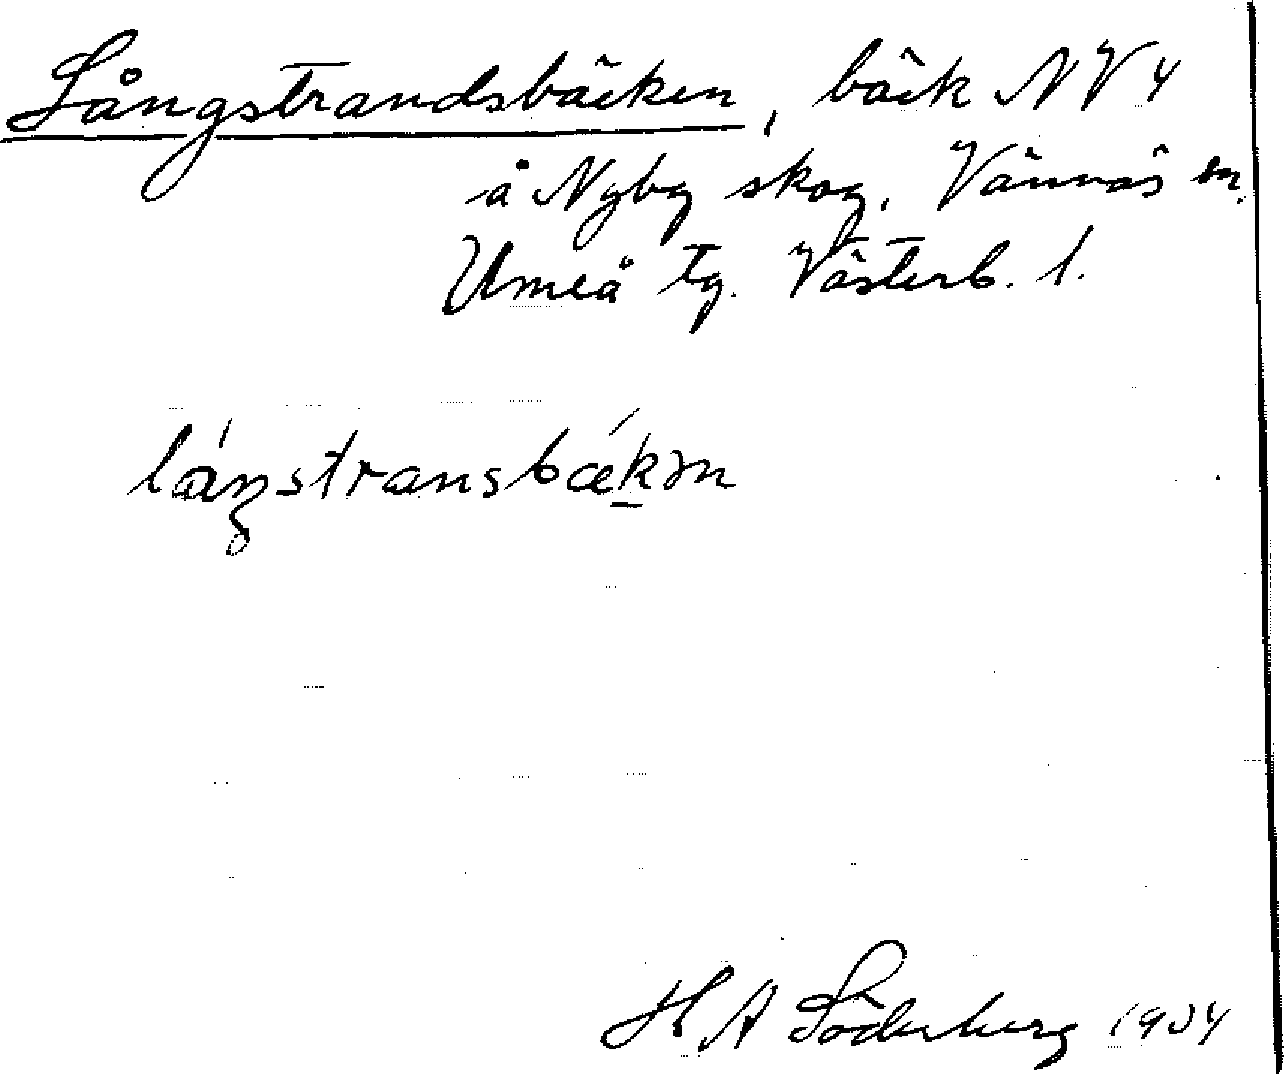 Långstrandsbäcken, bäck NV 4
å Nyby skog, Vännäs sn.
Umeå tg. Västerb. l.
láŋstransbǽkən
H A Söderberg 1934